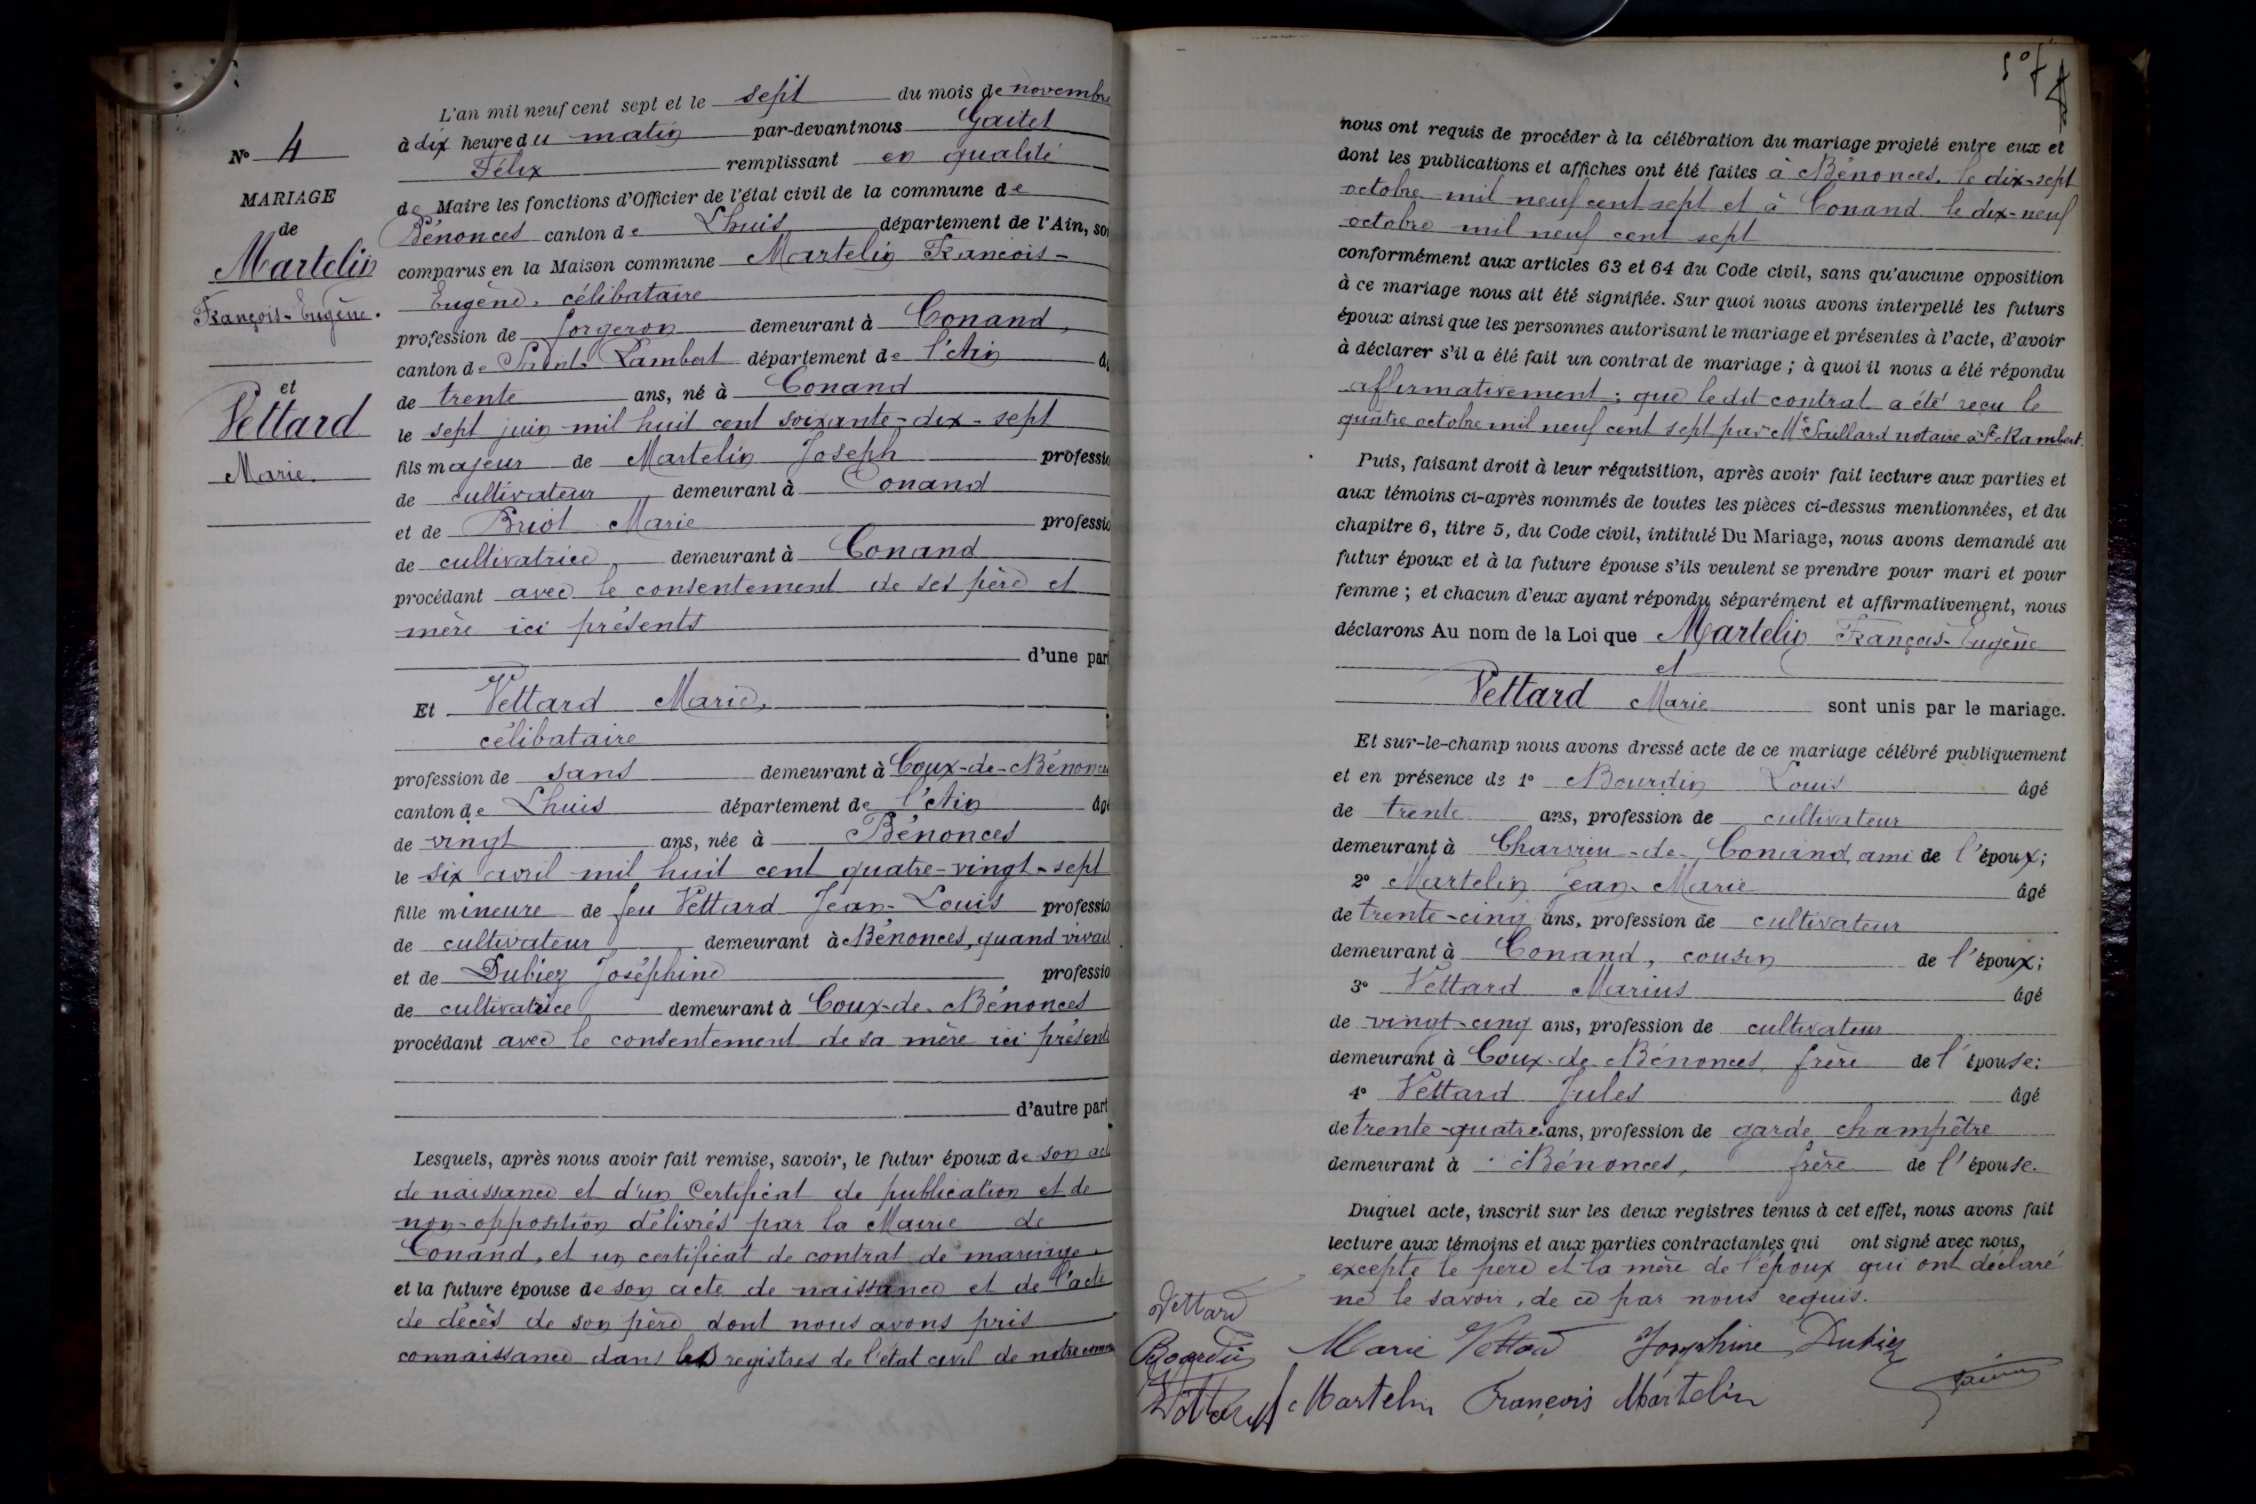 L'an mil neuf cent sept et le sept du mois de novembre
à dix heure du matin par-devant nous Gaitet
Félix remplissant en qualité
de Maire les fonctions d'Officier de l'état civil de la commune de
Bénonces canton de Lhuis département de l'Ain, so
comparus en la Maison commune Martelin François-
Eugène, célibataire
profession de forgeron demeurant à Conand,
canton de Saint-Rambert département de l'Ain
de trente ans, né à Conand
le sept juin mil huit cent soixante-dix-sept
fils majeur de Martelin Joseph professio
de cultivateur demeurant à Conand
et de Briot Marie professio
de cultivatrice demeurant à Conand
procédant avec le consentement de ses père et
mère ici présents
d'une par
Et Vettard Marie,
célibataire
profession de sans demeurant à Coux-de-Bénonces
canton de Lhuis département de l'Ain âgé
de vingt ans, née à Bénonces
le six avril mil huit cent quatre-vingt-sept
fille mineure de feu Vettard Jean-Louis professio
de cultivateur demeurant à Bénonces, quand vivait
et de Dubiez Joséphine professio
de cultivatrice demeurant à Coux-de-Bénonces
procédant avec le consentement de sa mère ici présente
d'autre part
Lesquels, après nous avoir fait remise, savoir, le futur époux de son acte
de naissance et d'un Certificat de publication et de
non-opposition délivrés par la Mairie de
Conand, et un certificat de contrat de mariage.
et la future épouse de son acte de naissance et de l'acte
de décès de son père dont nous avons pris
connaissance dans les registres de l'état civil de notre comm
N° 4
MARIAGE
de
Martelin
François-Eugène.
et
Vettard
Marie.
nous ont requis de procéder à la célébration du mariage projeté entre eux et
dont les publications et affiches ont été faites à Bénonces, le dix-sept
octobre mil neuf cent sept et à Conand le dix-neuf
octobre mil neuf cent sept
conformément aux articles 63 et 64 du Code civil, sans qu'aucune opposition
à ce mariage nous ait été signifiée. Sur quoi nous avons interpellé les futurs
époux ainsi que les personnes autorisant le mariage et présentes à l'acte, d'avoir
à déclarer s'il a été fait un contrat de mariage ; à quoi il nous a été répondu
affirmativement ; que le dit contrat a été reçu le
quatre octobre mil neuf cent sept par Me notaire à St Rambert.
Puis, faisant droit à leur réquisition, après avoir fait lecture aux parties et
aux témoins ci-après nommés de toutes les pièces ci-dessus mentionnées, et du
chapitre 6, titre 5, du Code civil, intitulé Du Mariage, nous avons demandé au
futur époux et à la future épouse s'ils veulent se prendre pour mari et pour
femme ; et chacun d'eux ayant répondu séparément et affirmativement, nous
déclarons Au nom de la Loi que Martelin François-Eugène
et
Vettard Marie sont unis par le mariage.
Et sur-le-champ nous avons dressé acte de ce mariage célébré publiquement
et en présence de 1° Bourdin Louis âgé
de trente ans, profession de cultivateur
demeurant à Charvieu-de-Conand, ami de l'époux;
2° Martelin Jean-Marie âgé
de trente-cinq ans, profession de cultivateur
demeurant à Conand, cousin de l'époux;
3° Vettard Marius âgé
de vingt-cinq ans, profession de cultivateur
demeurant à Coux-de-Bénonces, frère de l'épouse;
4° Vettard Jules âgé
de trente-quatre ans, profession de garde champêtre
demeurant à Bénonces, frère de l'épouse.
Duquel acte, inscrit sur les deux registres tenus à cet effet, nous avons fait
lecture aux témoins et aux parties contractantes qui ont signé avec nous,
excepté le père et la mère de l'époux qui ont déclaré
ne le savoir, de ce par nous requis.
Vettard
Bourdin Marie Vettard Joséphine Dubiez
Vettard Martelin François Martelin